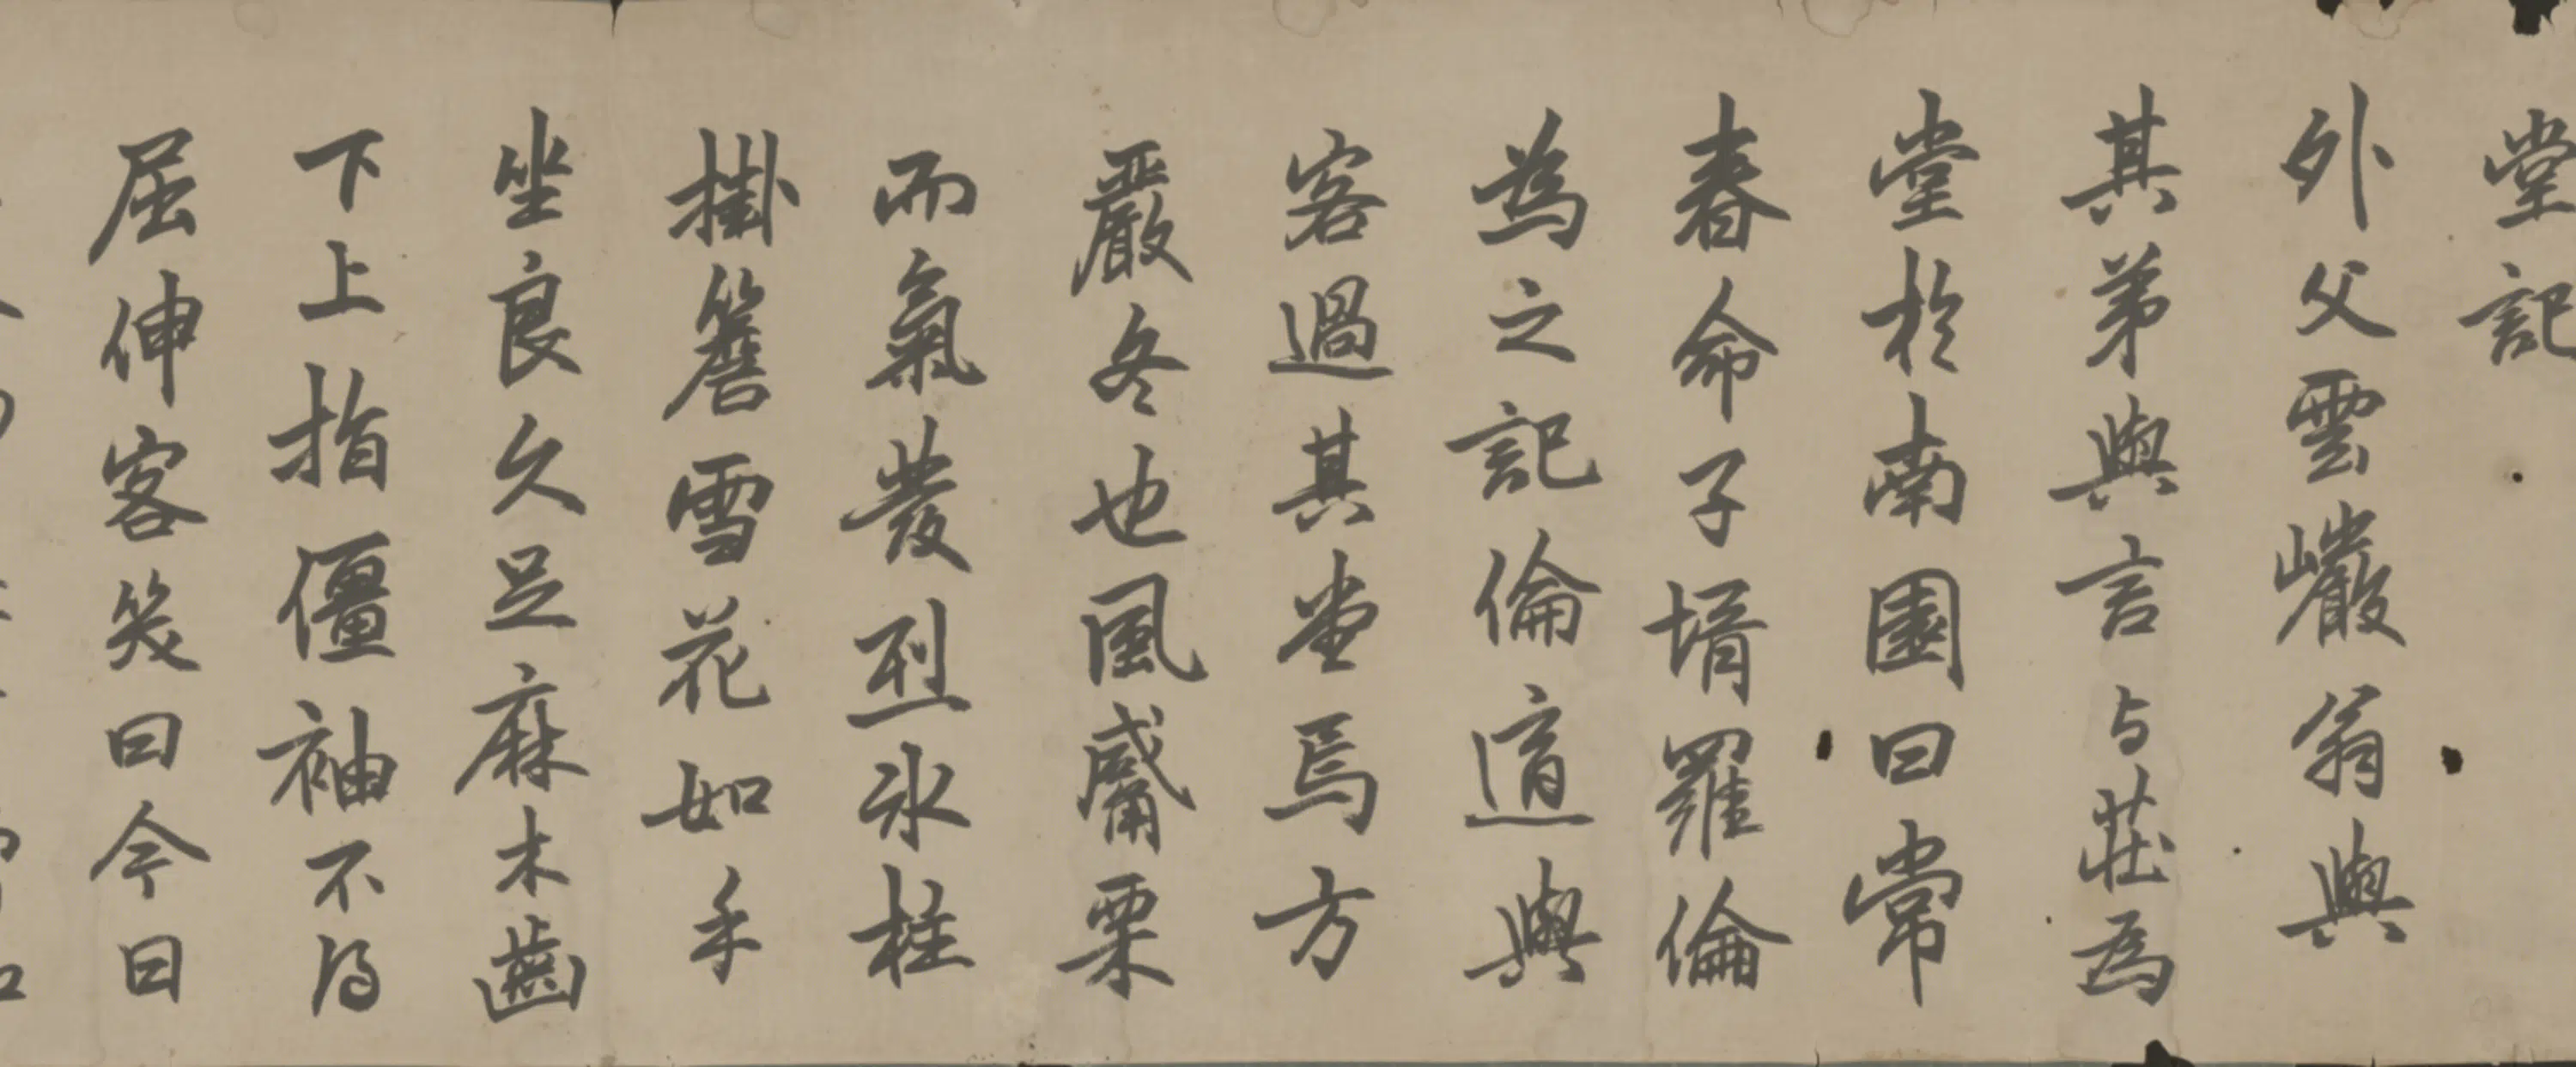 堂記
外父雲巖翁與
其弟與言与莊為
堂於南園曰常
春命子壻羅倫
為之記倫適與
客過其堂焉方
嚴冬也風觱栗
而氣發烈氷柱
掛簷雪花如手
坐良久足麻木齒
下上指僵袖不得
屈伸客笑曰今日